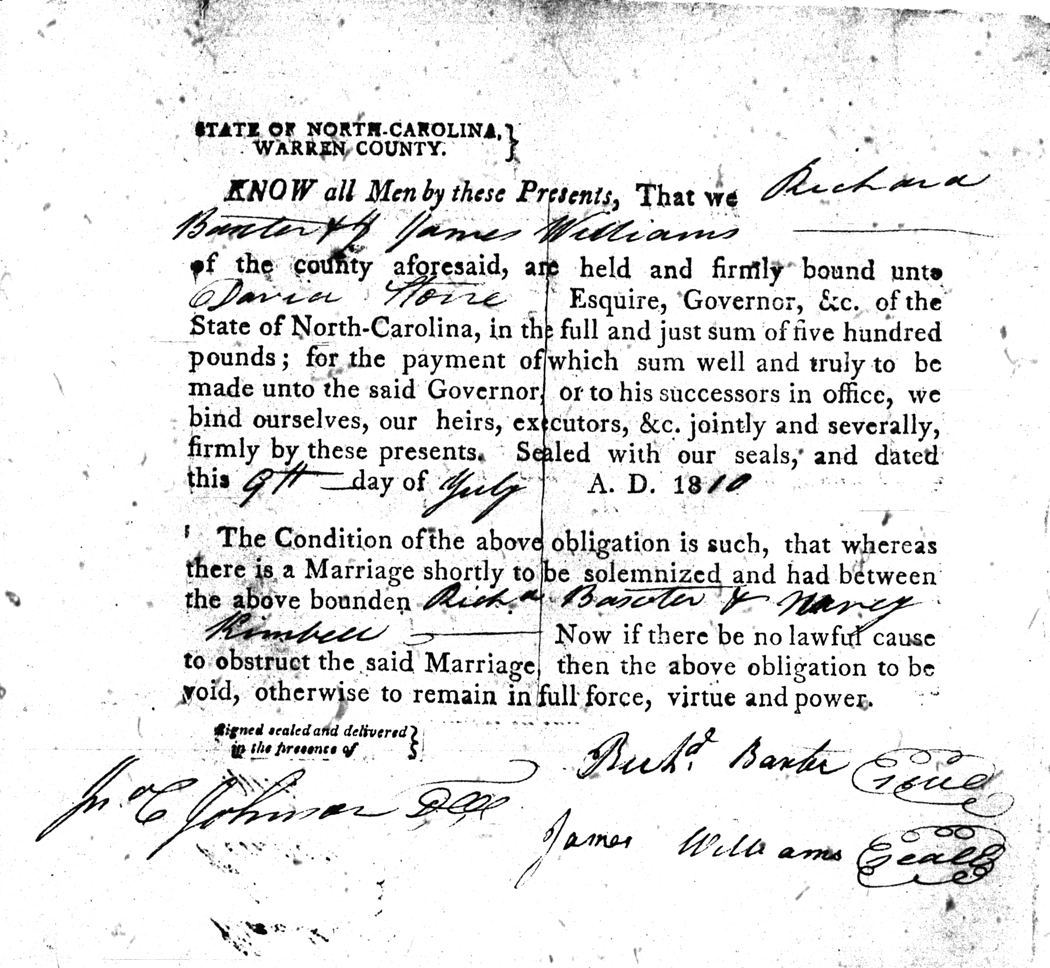 STATE OF NORTH-CAROLINA,
WARREN COUNTY.
KNOW all Men by these Presents, That we Richard
Baxter & James Williams
of the county aforesaid, are held and firmly bound unto
David Stone Esquire, Governor, &c. of the
State of North-Carolina, in the full and just sum of five hundred
pounds; for the payment of which sum well and truly to be
made unto the said Governor, or to his successors in office, we
bind ourselves, our heirs, executors, &c. jointly and severally,
firmly by these presents. Sealed with our seals, and dated
this 9th day of July A. D. 1810
The Condition of the above obligation is such, that whereas
there is a Marriage shortly to be solemnized and had between
the above bounden Richd Baxter & Nancy
Kimbell Now if there be no lawful cause
to obstruct the said Marriage, then the above obligation to be
void, otherwise to remain in full force, virtue and power.
Signed sealed and delivered
in the presence of
Richd. Baxter Seal
Jno C Johnson
James Williams Seal